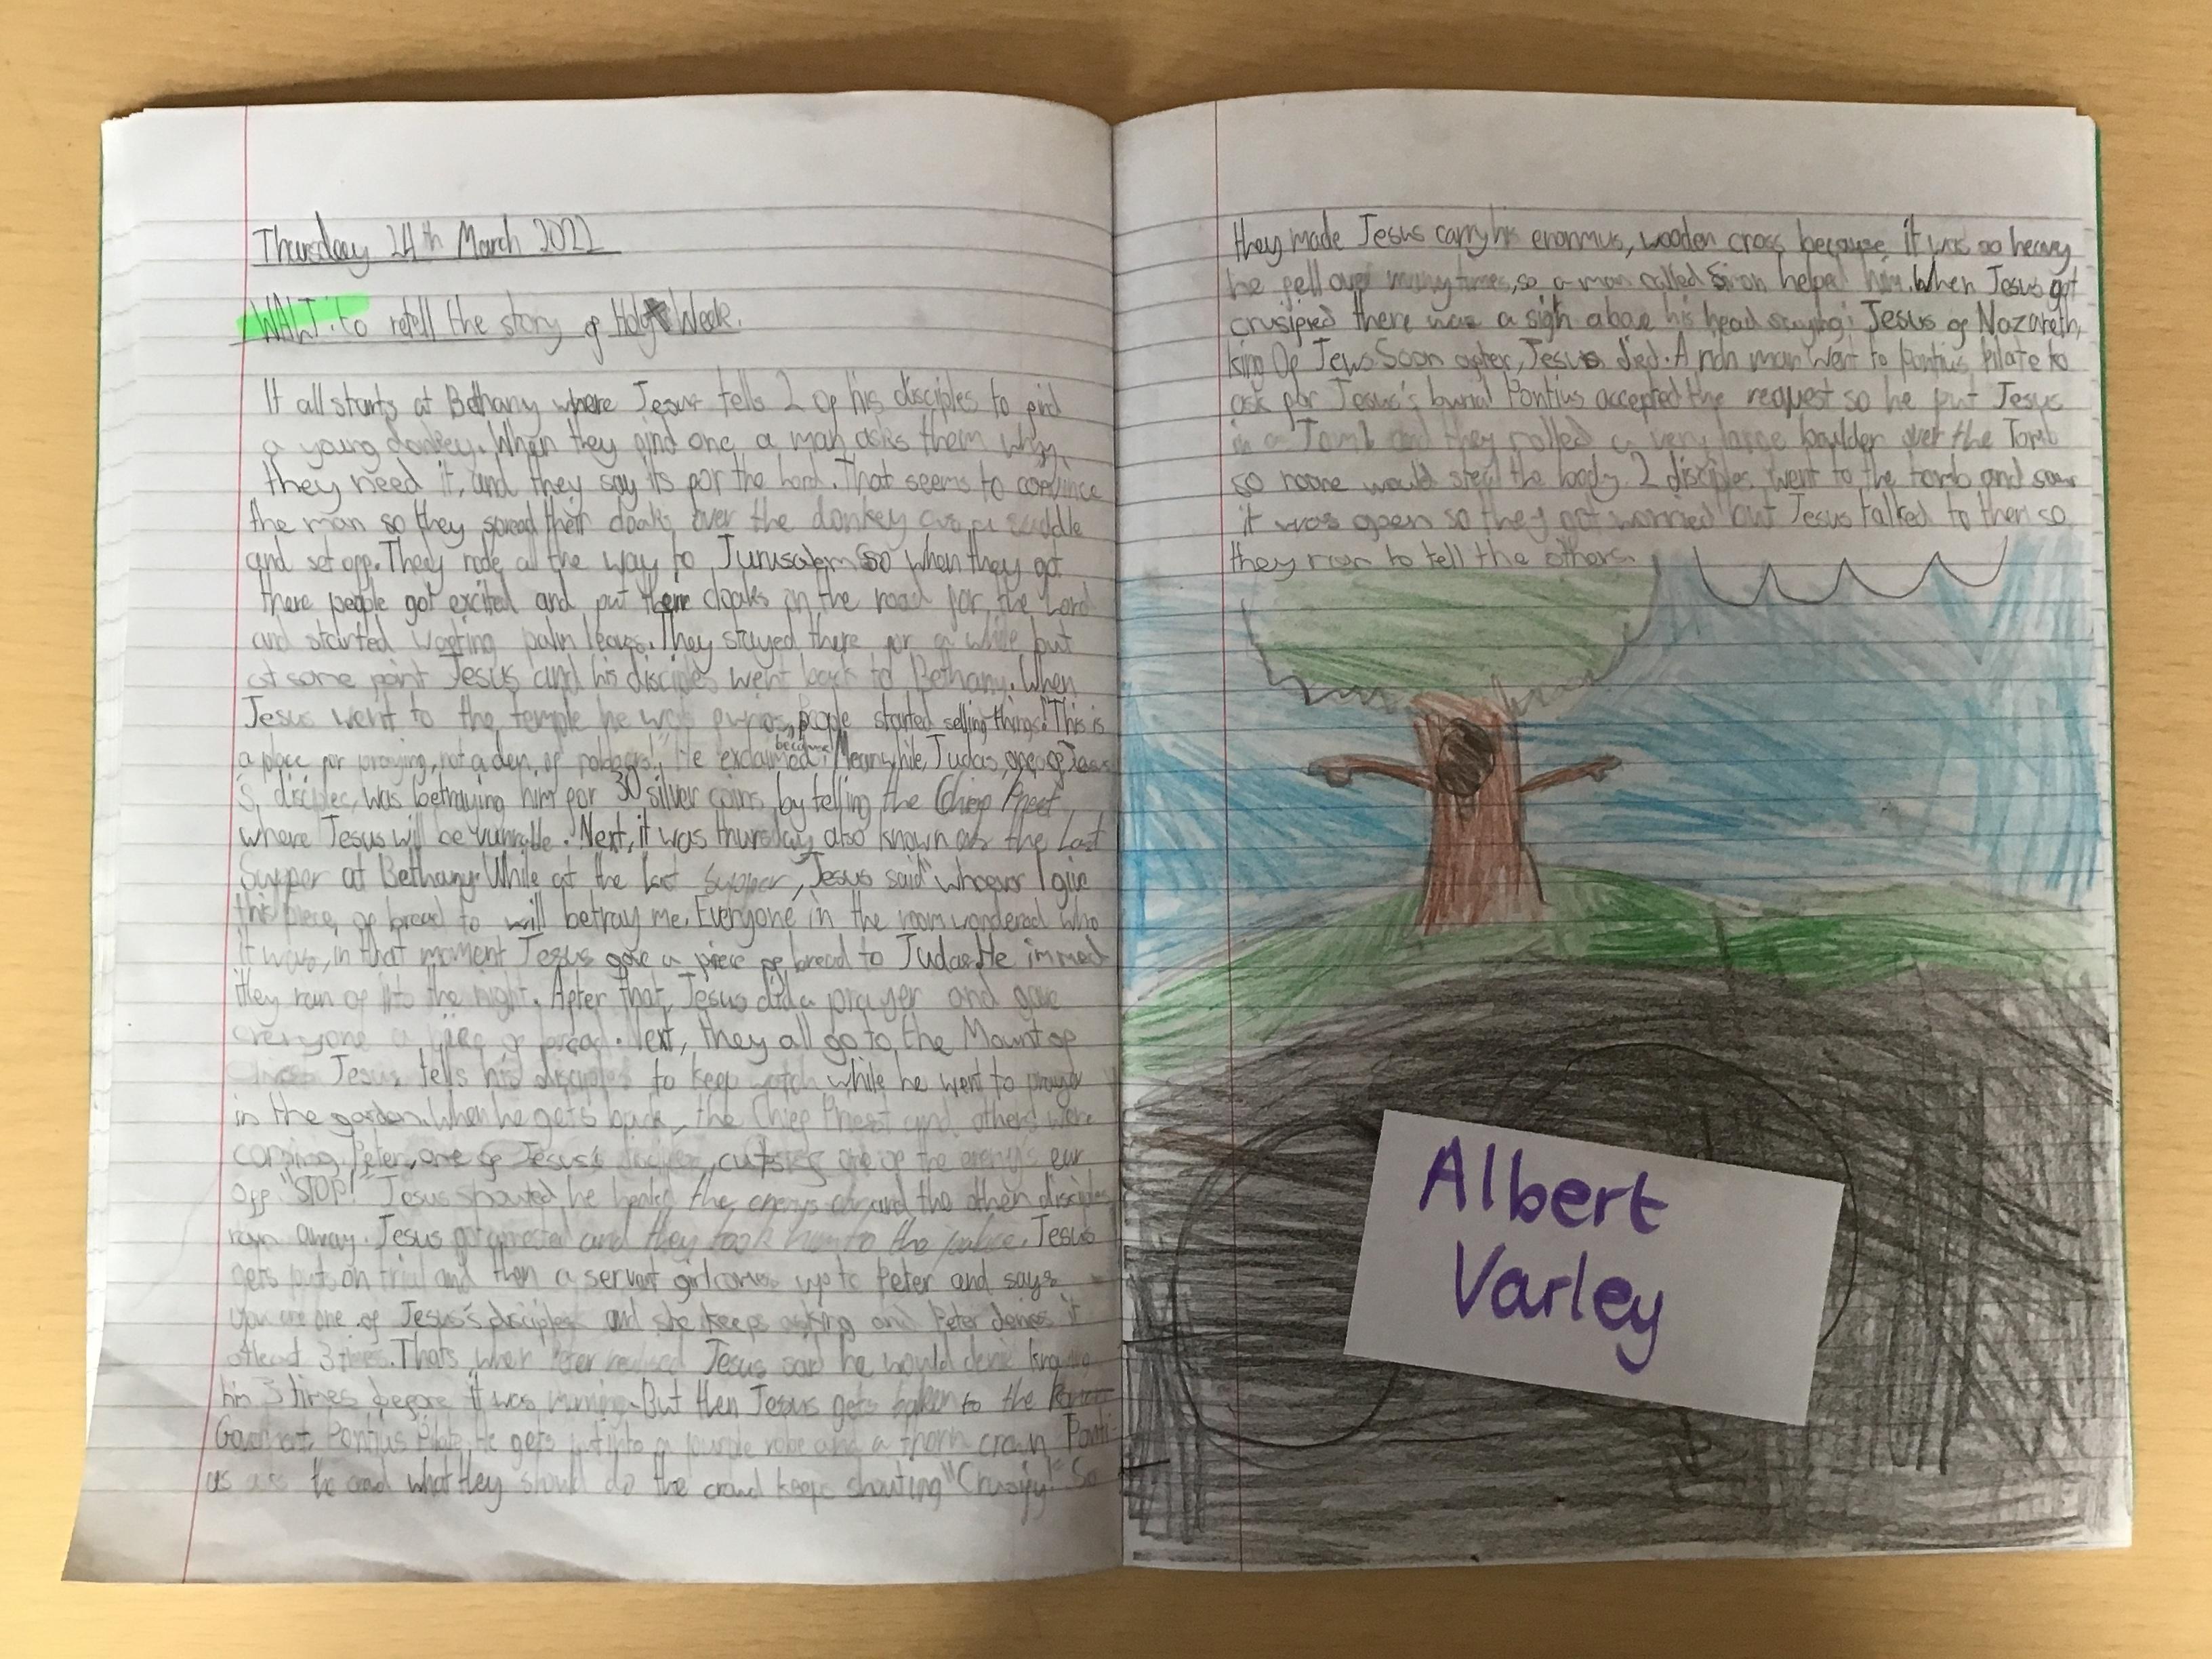 Thursday 24th March 2022
WALT: to retell the story of Holy Week.
It all starts at Bethany where Jesus tells 2 of his disciples to find
a young donkey. When they find one a man asks them why
they need it, and they say its for the Lord. That seems to convince
the man so they spread their cloaks over the donkey as a saddle
and set off. They rode all the way to Jurusalem so when they got
there people got excited and put there cloaks on the road for the Lord
and started waving palm leaves. They stayed there for a while but
at some point Jesus and his disciples went back to Bethany. When
Jesus went to the temple he was furios, people started selling things. "This is
because
a place for praying, not a den of robbers!" He exclaimed. Meanwhile, Judas, one of Jesus
's disciples, was betraying him for 30 silver coins by telling the Chief Priest
where Jesus will be . Next, it was thursday also known as the Last
Supper at Bethany. While at the last supper, Jesus said "whoever I give
this piece of bread to will betray me. Everyone in the room wondered who
it was, in that moment Jesus gave a piece of bread to Judas. He immed
itley ran of into the night. After that, Jesus did a prayer and gave
everyone a piece of bread. Next, they all go to the Mount of
Jesus tells his disciples to keep watch while he went to prayer
in the garden. When he gets back, the Chief Priest and others were
coming. Peter, one of Jesus's disciples, cuts one of the enemy's ear
off "STOP!" Jesus shouted he healed the enemys ear and the other disciples
ran away. Jesus got arrested and they took him to the palace. Jesus
gets put on trial and then a servent girl comes up to Peter and says
you are one of Jesus's disciples and she keeps asking and Peter denies it
atleast 3 times. Thats when Peter realised Jesus said he would denie knowing
him 3 times before it was morning. But then Jesus gets taken to the
Pontius Pilate. He gets put into a purple robe and a thorn crown Ponti-
us asks the crowd what they should do the crowd keeps shouting "Crusify!" So
they made Jesus carry his enormus, wooden cross because it was so heavy
he fell over many times, so a man called Simon helped him. When Jesus got
crusified there was a sign above his head saying: Jesus of Nazareth,
king Of Jews. Soon after, Jesus died. A rich man went to Pontius Pilate to
ask for Jesus's burial Pontius accepted the request so he put Jesus
in a Tomb and they rolled a very large boulder over the Tomb
so noone would steal the body. 2 disciples went to the tomb and saw
it was open so they got worried but Jesus talked to them so
they ran to tell the others.
Albert
Varley